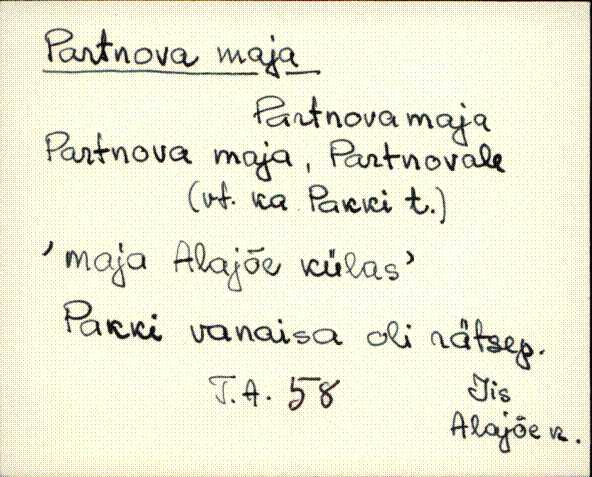 Partnova maja
Partnovamaja
Partnova maja, Partnovale
(vt. ka Pakki t.)
'maja Alajõe külas'
Pakki vanaisa oli rätsep.
T.A. 58 Iis
Alajõe k.